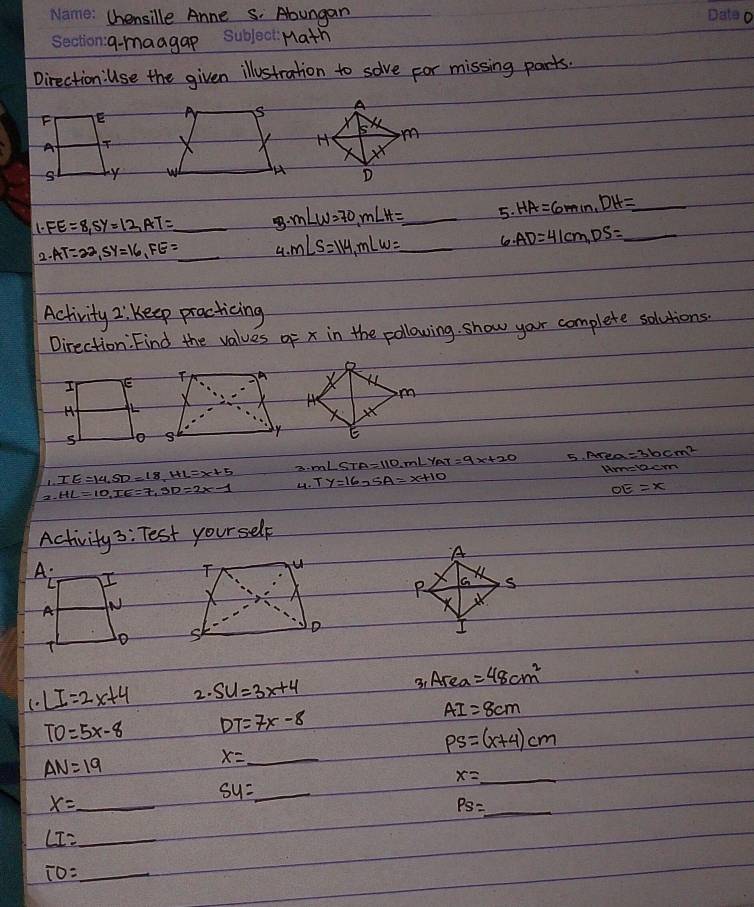 Name: Chensille Anne S. Abungan
Date
Section:9-maagap Subject:Math
Direction:Use the given illustration to solve for missing parts.
F E A S A
A T H S M
S Y W H D
1.FE=8,SY=12,AT=____
3.m∠W=70,m∠H=____
5.HA=6min,DH=____
2.AT=22,SY=16,FE=____
4.m∠S=114,m∠W=____
6.AD=41cm,DS=____
Activity 2:Keep practicing
Direction:Find the values of x in the following.Show your complete solutions.
I E T A O
H L H M
S D S Y E
1.IE=14,SD=18,HL=x+5
3.m∠STA=110,m∠YAT=9x+20
5.Area=36cm²
2.HL=10,IE=7,SD=2x-1
4.TY=16,SA=x+10
HM=12cm
OE=x
Activity3:Test yourself
A:
L I T U A
A N P G S
T O S D I
1.LI=2x+4
2.SU=3x+4
3.Area=48cm²
TO=5x-8
DT=7x-8
AI=8cm
AN=19
x=____
PS=(x+4)cm
x=____
SU=____
x=____
LI=____
PS=____
TO=____